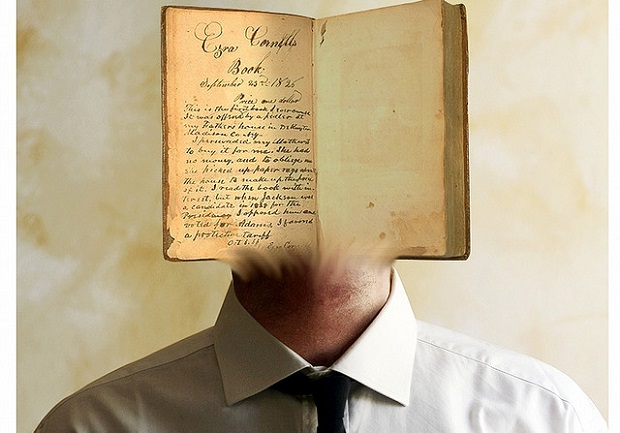 Ezra Cornell's
Book
September 23rd 18
Price one dollar
This is the first book I ever owned.
It was offered by a pedler at
my Father's house in DeRuyter
Madison County.
I persuaded my Mother
to buy it for me. She had
no money, and to oblige me
she picked up paper rags about
the house to make up the price
of it. I read the book with in-
terest, but when Jackson was
a candidate in 1828 for the
Presidency I opposed him and
voted for Adams. I favored
a protective tariff.
Ezra Cor